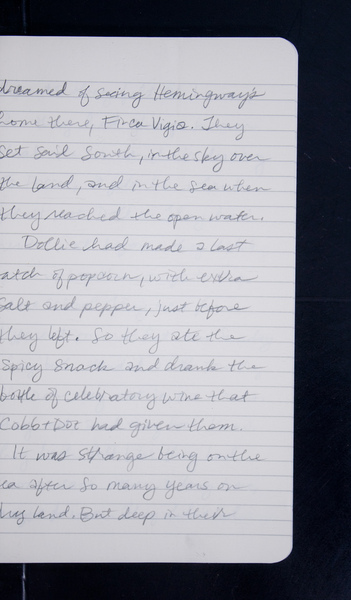 dreamed of seeing Hemingway's
home there, Finca Vigia. They
set sail South, in the sky over
the land, and in the sea when
they reached the open water.
Dollie had made a last
atch of popcorn, with extra
salt and pepper, just before
they left. So they ate the
spicy snack and drank the
bottle of celebratory wine that
Cobb+Doc had given them.
It was strange being on the
ea after so many years on
land. But deep in their